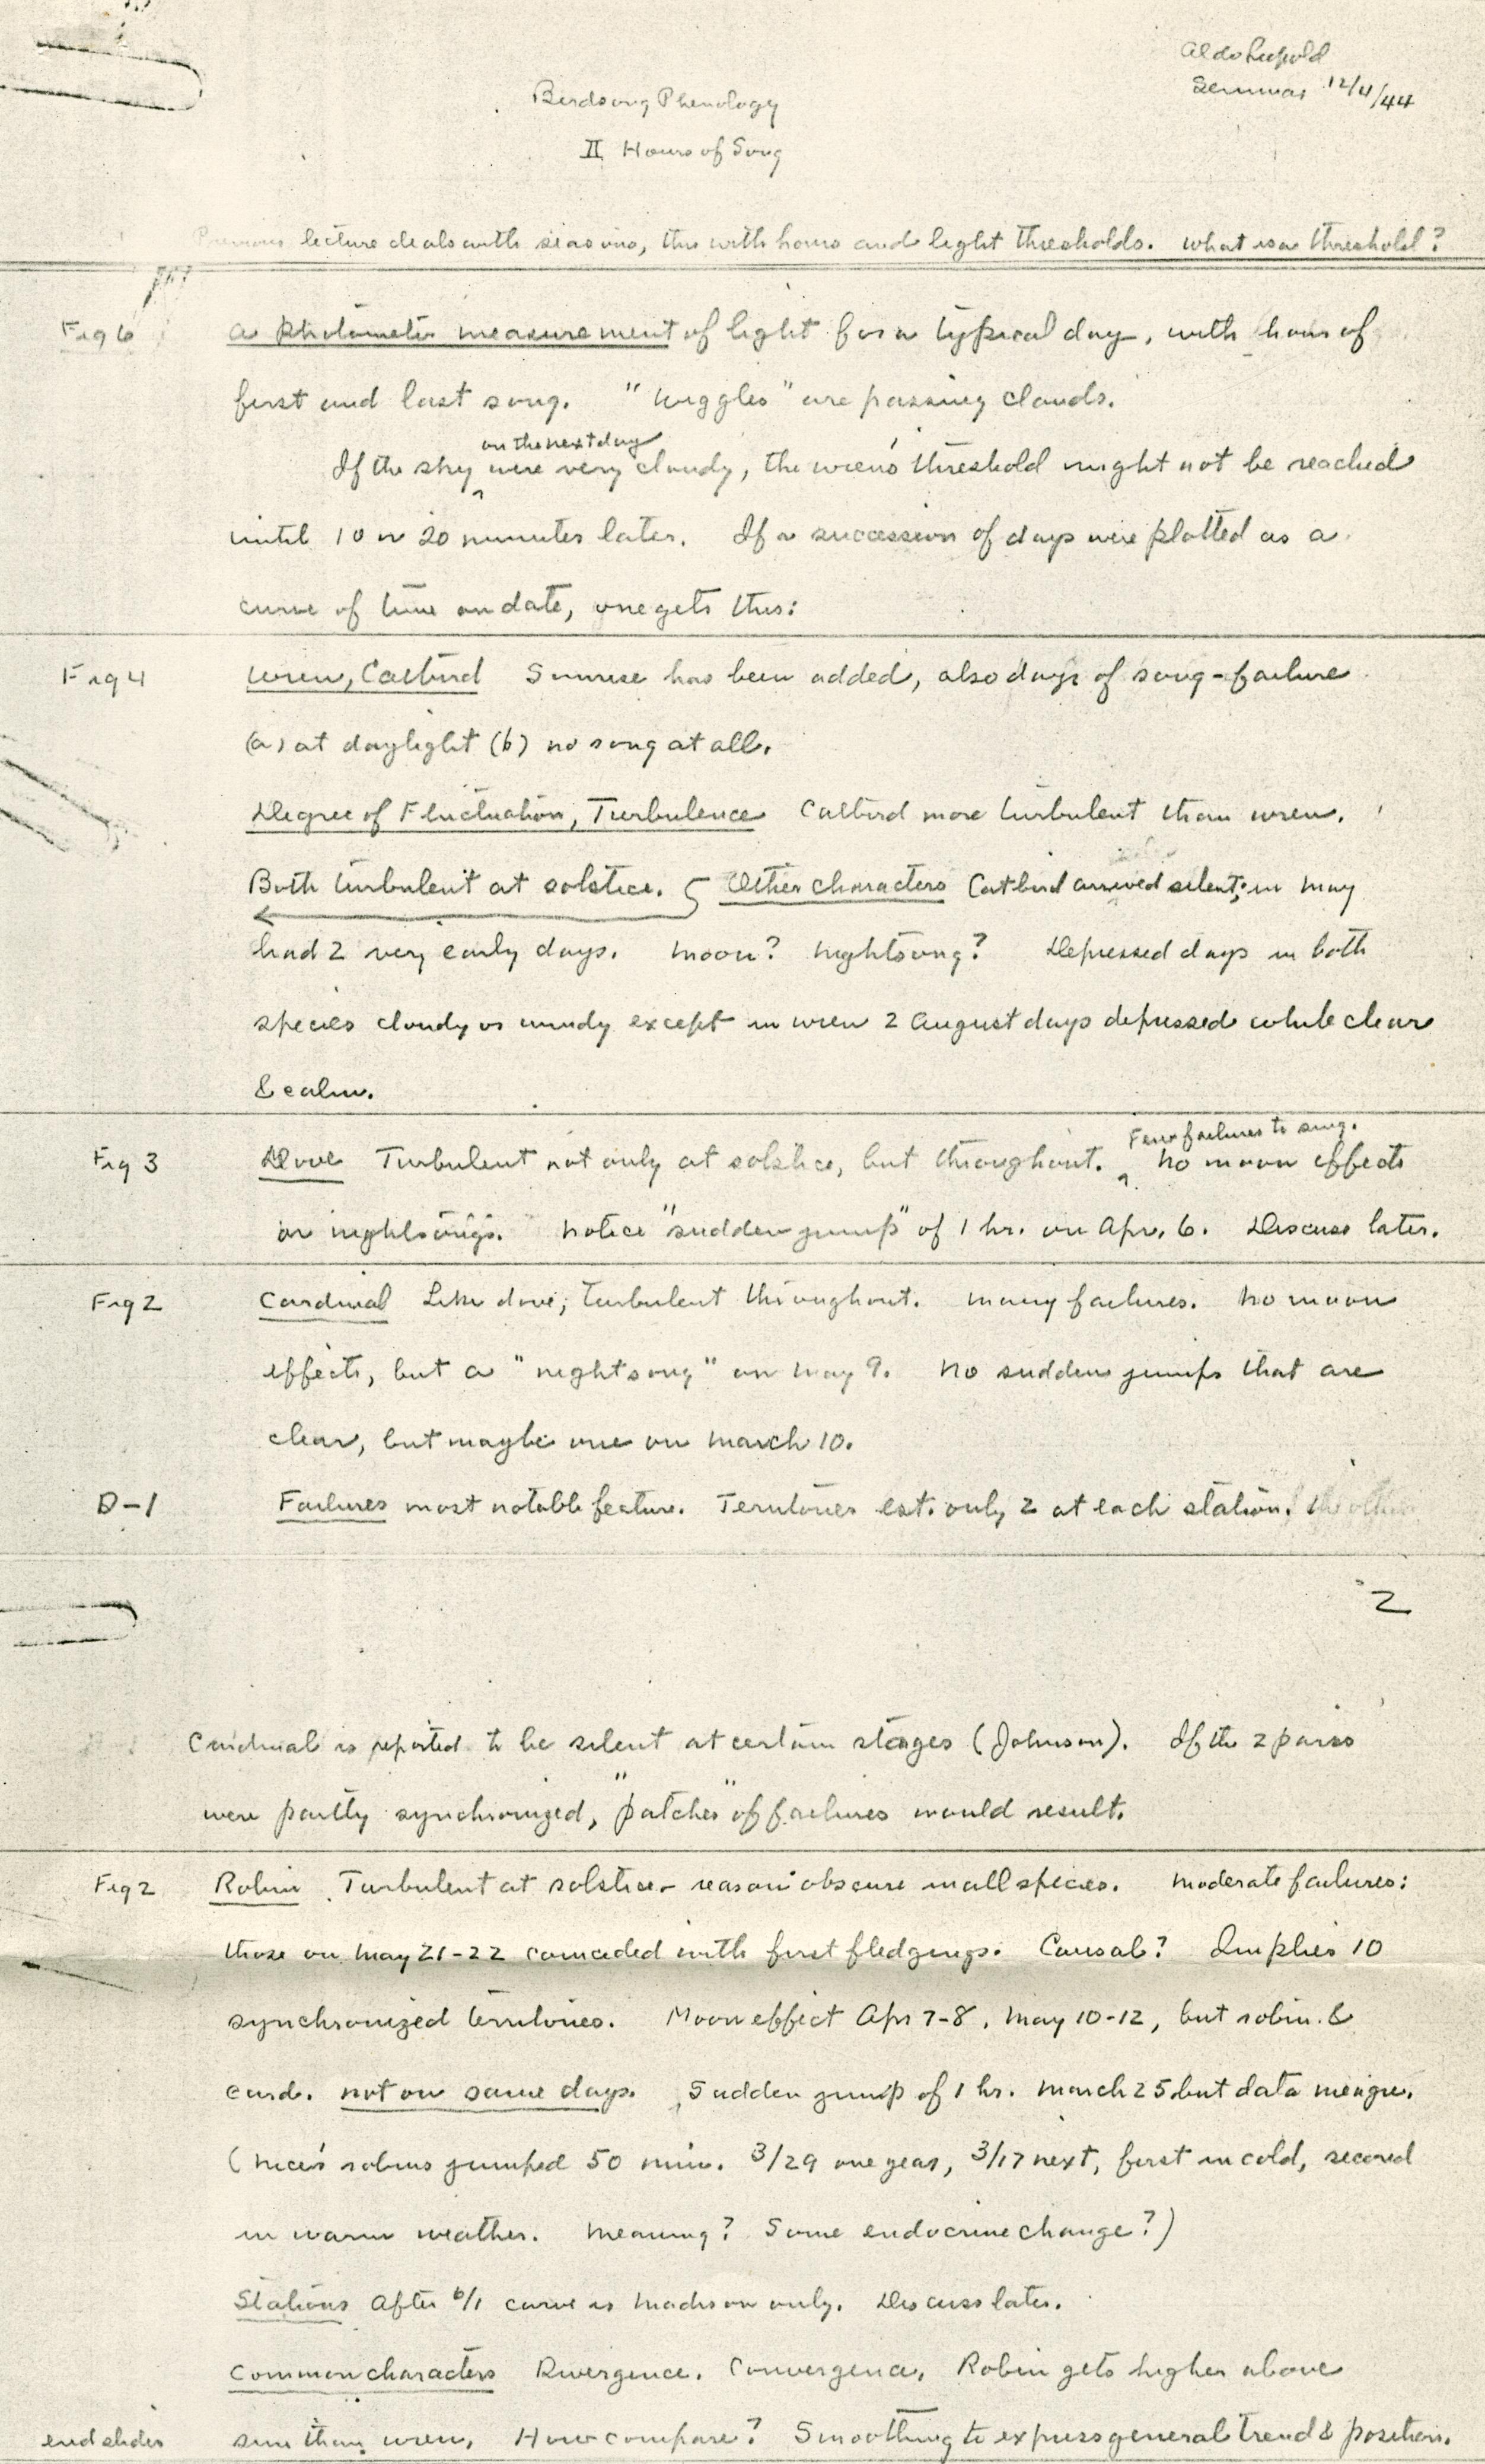 Aldo Leopold
Seminar 12/4/44
Birdsong Phenology
II Hours of Song
Previous lecture deals with seasons, this with hours and light thresholds. What is a threshold?
Fig 6 A photometer measurement of light for a typical day, with hour of
first and last song. "Wiggles" are passing clouds.
on the next day
If the sky were very cloudy, the wren's threshold might not be reached
until 10 or 20 minutes later. If a succession of days were plotted as a
curve of time on date, one gets this:
Fig 4 Wren, Catbird Sunrise has been added, also days of song-failure
(a) at daylight (b) no song at all.
Degree of Fluctuation, Turbulence Catbird more turbulent than wren.
Both turbulent at solstice. Other characters Catbird arrived silent; in May
had 2 very early days. Moon? Nightsong? Depressed days in both
species cloudy or windy except in wren 2 August days depressed while clear
& calm.
Few failures to sing.
Fig 3 Dove Turbulent not only at solstice, but throughout. No moon effects
or nightsongs. Notice "sudden jump" of 1 hr. on Apr. 6. Discuss later.
Fig 2 Cardinal Like dove, turbulent throughout. Many failures. No moon
effects, but a "nightsong" on May 9. No sudden jumps that are
clear, but maybe one on March 10.
D-1 Failures most notable feature. Territories est. only 2 at each station.
2
Cardinal is reported to be silent at certain stages (Johnson). If the 2 pairs
were partly synchronized, "patches" of failures would result.
Fig 2 Robin Turbulent at solstice - reason obscure in all species. Moderate failures:
those on May 21-22 coincided with first fledgings. Causal? Implies 10
synchronized territories. Moon effect Apr 7-8, May 10-12, but robin &
card. not on same days. Sudden jump of 1 hr. March 25 but data meagre.
(Nice's robins jumped 50 min. 3/29 one year, 3/17 next, first in cold, second
in warm weather. Meaning? Some endocrine change?)
Stations After 6/1 curve is Madison only. Discuss later.
Common characters Divergence. Convergence. Robin gets higher above
end slides sun than wren. How compare? Smoothing to express general trend & position.